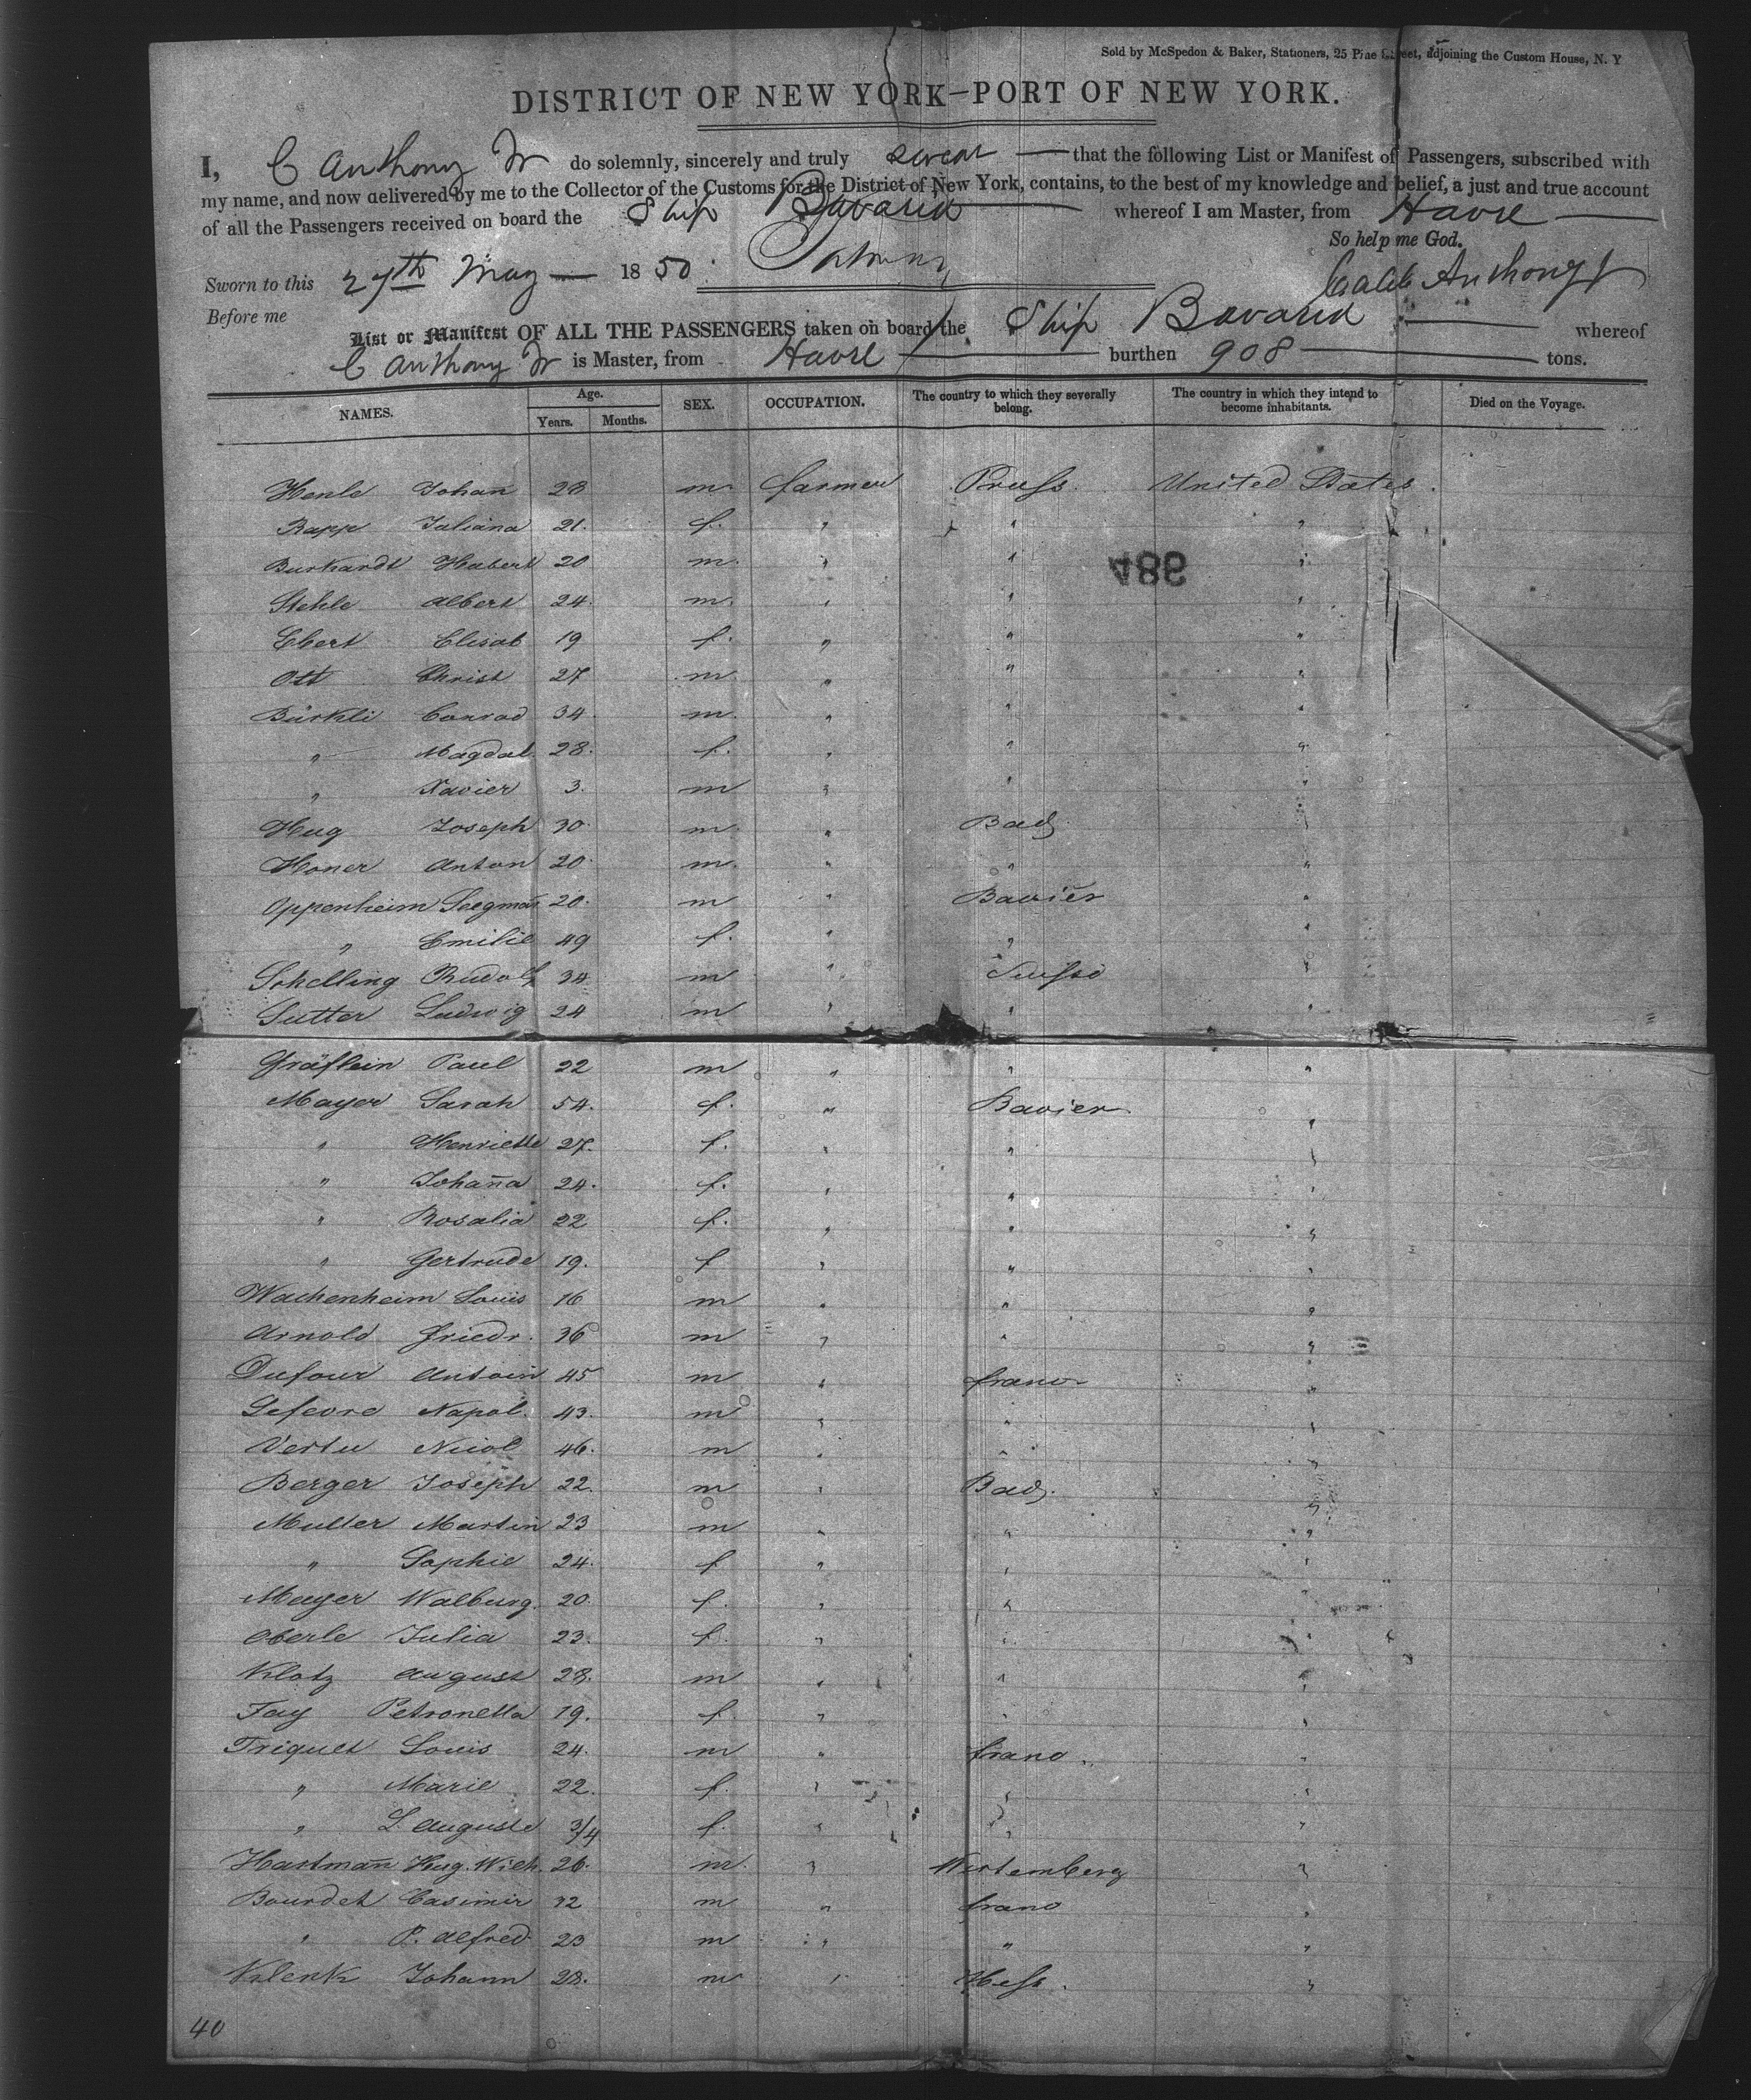 Sold by McSpedon & Baker, Stationers, 25 Pine Street, adjoining the Custom House, N. Y
DISTRICT OF NEW YORK—PORT OF NEW YORK.
I, C Anthony Jr do solemnly, sincerely and truly swear — that the following List or Manifest of Passengers, subscribed with
my name, and now delivered by me to the Collector of the Customs for the District of New York, contains, to the best of my knowledge and belief, a just and true account
of all the Passengers received on board the Ship Bavaria whereof I am Master, from Havre —
So help me God.
Sworn to this 27th May — 1850. Caleb Anthony Jr
Before me
List or Manifest OF ALL THE PASSENGERS taken on board the Ship Bavaria — whereof
C Anthony Jr is Master, from Havre — burthen 908 — tons.
NAMES. Age. Years. Months. SEX. OCCUPATION. The country to which they severally belong. The country in which they intend to become inhabitants. Died on the Voyage.
Henle Johan 28 m. farmer Pruss. United States.
Rapp Juliana 21. f. " " "
486
Burkardt Hubert 20 m. " " "
Stehle Albert 24. m. " " "
Ebert Elisab 19 f. " " "
Ott Christ 27 m " " "
Bürkli Conrad 34. m. " " "
" Magdal. 28. f. " " "
" Xavier 3. m " " "
Hug Joseph 30. m. " Bad. "
Honer Anton 20. m. " " "
Oppenheim Seegman 20. m " Bavier "
" Emilie 49 f. " " "
Schelling Rudolf 34 m " Suisse "
Sutter Ludwig 24 m " " "
Gräflein Paul 22 m " " "
Mayer Sarah 54. f. " Bavier "
" Henriette 27. f. " " "
" Johan̄a 24. f. " " "
" Rosalia 22 f. " " "
" Gertrude 19. f " " "
Wachenheim Louis 16 m " " "
Arnold Friedr. 36 m " " "
Dufour Antoin 45 m " franc "
Lefevre Napol. 43. m " " "
Vertu Nicol 46. m " " "
Berger Joseph 22. m " Bad. "
Muller Martin 23 m " " "
" Sophie 24. f " " "
Mayer Walburg. 20. f. " " "
Oberle Julia 23. f. " " "
Klotz August 28. m " " "
Fay Petronella 19. f. " " "
Triquet Louis 24. m " franc. "
" Marie 22. f. " " "
" L. Auguste 3/4 f. " " "
Hartman̄ Hug. Wilh. 26. m. " Wirtemberg "
Bourdet Casimir 32 m " franc "
" P. Alfred 23 m " " "
Klenk Johann 28. m " Hess. "
40